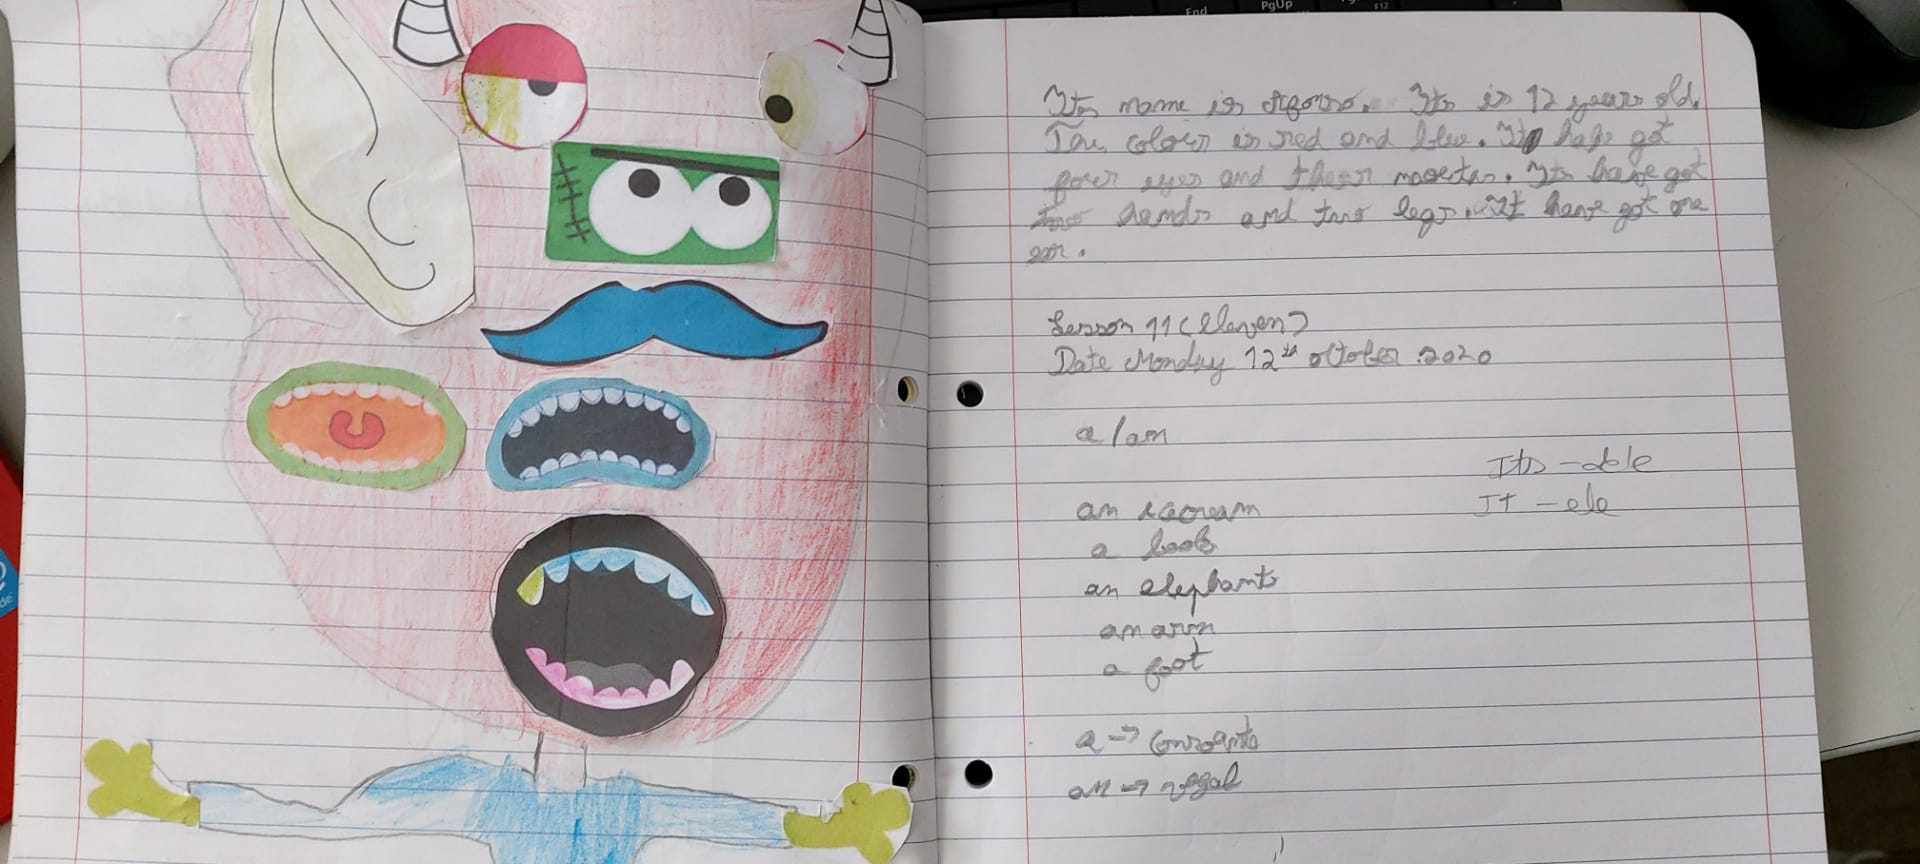 End PgUp F12
Its name is Afonso. Its is 12 years old.
The colour is red and blue. It has got
four eyes and three Its have got
two hands and two legs. It have got one
ear.
Lesson 11 (eleven)
Date Monday 12th october 2020
a / an
Its - dele
It - ele
an icecream
a book
an elephants
an arm
a foot
a → consoants
an → vogal